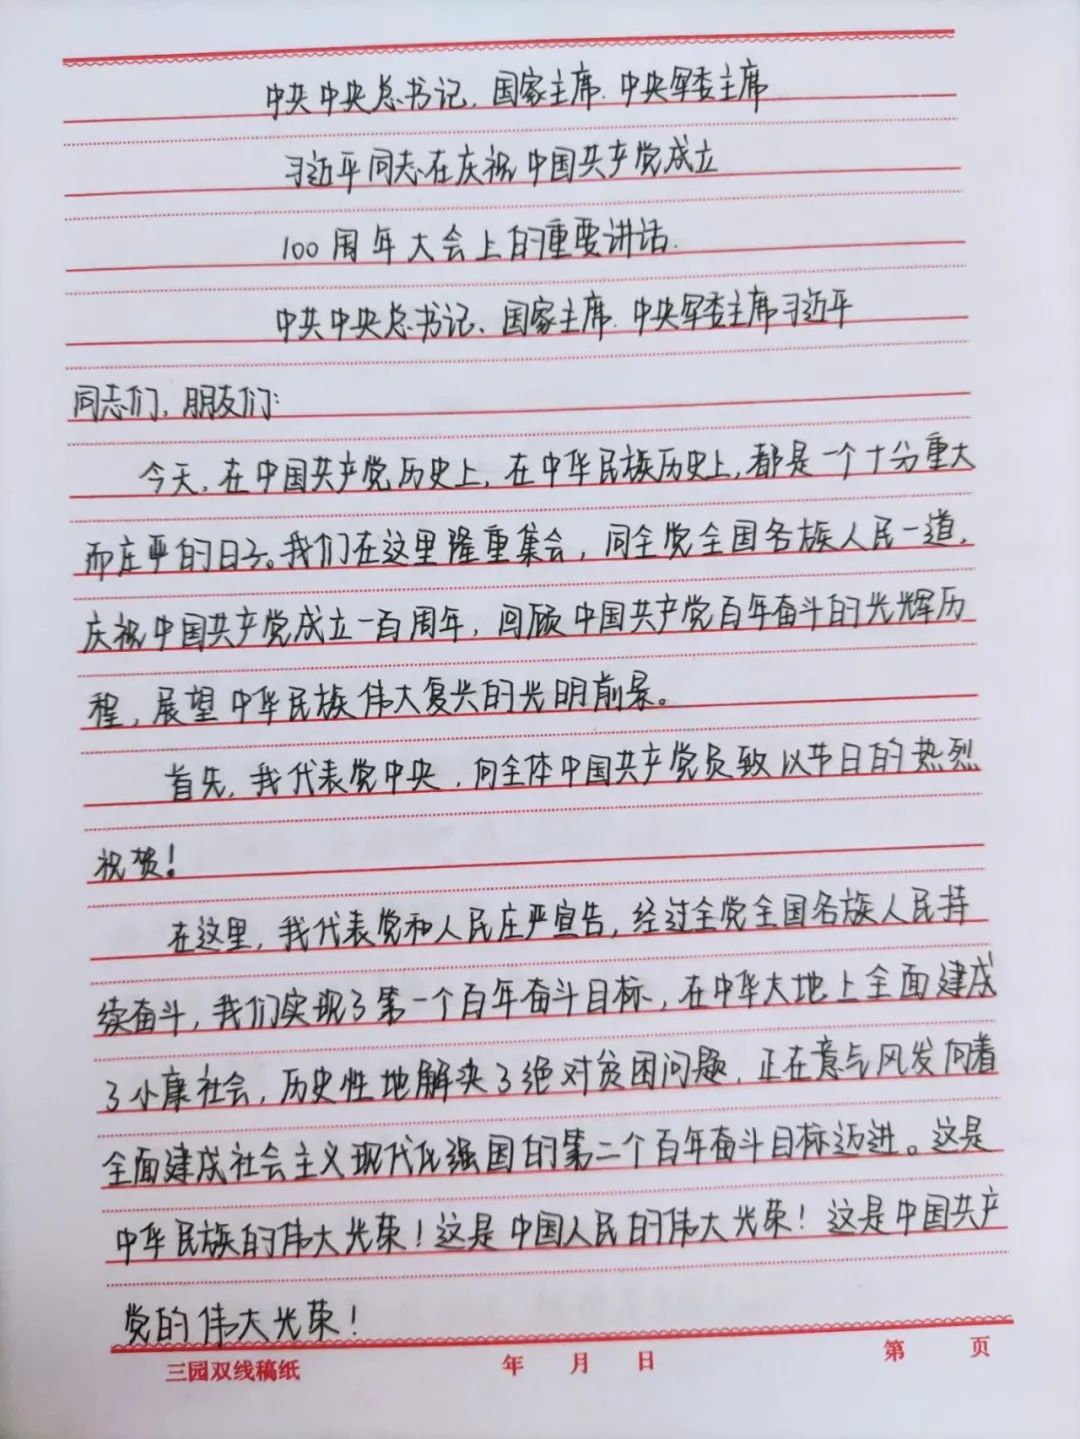 中共中央总书记、国家主席、中央军委主席
习近平同志在庆祝中国共产党成立
100周年大会上的重要讲话.
中共中央总书记、国家主席、中央军委主席习近平
同志们，朋友们：
今天，在中国共产党历史上，在中华民族历史上，都是一个十分重大
而庄严的日子。我们在这里隆重集会，同全党全国各族人民一道，
庆祝中国共产党成立一百周年，回顾中国共产党百年奋斗的光辉历
程，展望中华民族伟大复兴的光明前景。
首先，我代表党中央，向全体中国共产党员致以节日的热烈
祝贺！
在这里，我代表党和人民庄严宣告，经过全党全国各族人民持
续奋斗，我们实现了第一个百年奋斗目标，在中华大地上全面建成
了小康社会，历史性地解决了绝对贫困问题，正在意气风发向着
全面建成社会主义现代化强国的第二个百年奋斗目标迈进。这是
中华民族的伟大光荣！这是中国人民的伟大光荣！这是中国共产
党的伟大光荣！
三园双线稿纸 年 月 日 第 页